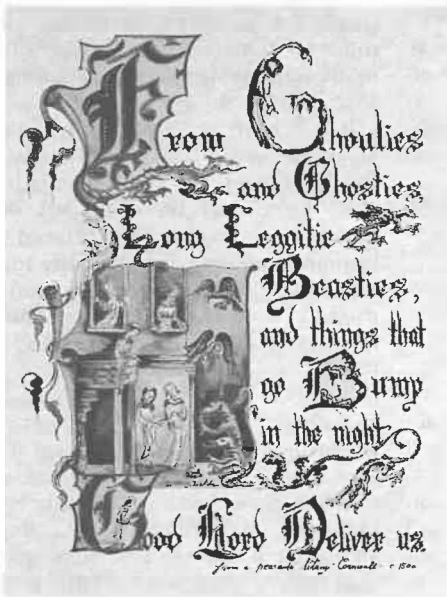 From Ghoulies
and Ghosties,
Long Leggitie
Beasties,
and things that
go Bump
in the night
Good Lord Deliver us
from a peasants litany - Cornwall - c 1500